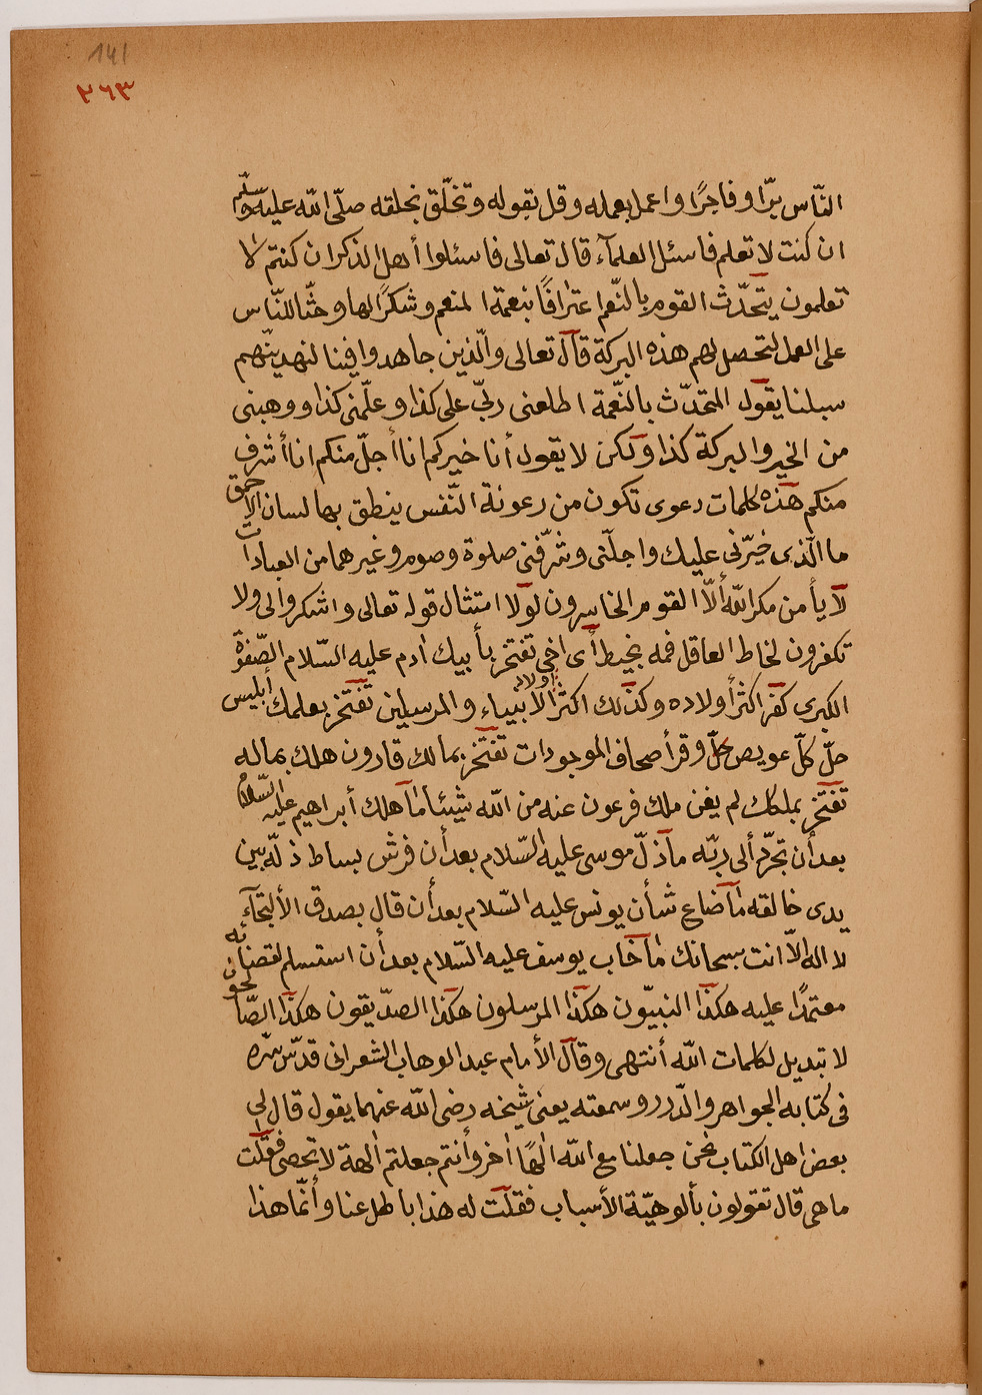 141
٣٦٣
النّاس برّا وفاجرًا واعمل بعمله وقل بقوله وتخلّق بخلقه صلّى الله عليه وسلّم
ان كنت لا تعلم فاسئل العلمآء قال تعالى فاسئلوا أهل الذكر ان كنتم لا
تعلمون يتحدّث القوم بالنّعم اعترافًا بنعمة المنعم وشكرًا لها وحثّا للنّاس
على العمل لتحصل لهم هذه البركة قال تعالى والّذين جاهدوا فينا لنهدينّهم
سبلنا يقول المتحدّث بالنّعمة اطلعنى ربّى على كذا وعلّمنى كذا ووهبنى
من الخير والبركة كذا ولكن لا يقول أنا خيركم انا أجلّ منكم انا أشرف
منكم هذه كلمات دعوى تكون من رعونة النّفس ينطق بها لسان الاحمق
ما الّذى خيّرنى عليك واجلّنى وشرّفنى صلوة وصوم وغيرهما من العبادات
لا يأمن مكر الله ألّا القوم الخاسرون لولا امتثال قوله تعالى واشكروا لى ولا
تكفرون لخاط العاقل فمه بمخيط أى اخى تفتخر بأبيك ادم عليه السّلام الصّفوة
الكبرى كفر اكثر أولاده وكذلك اكثر أولاد الأنبياء والمرسلين تفتخر بعلمك أبليس
حلّ كلّ عويص وقرأ صحائف الموجودات تفتخر بمالك قارون هلك بماله
تفتخر بملكك لم يغن ملك فرعون عنه من الله شيئا ما هلك أبراهيم عليه السّلام
بعد أن تجرّد ألى ربّه ما ذلّ موسى عليه السّلام بعد أن فرش بساط ذلّه بين
يدى خالقه ما ضاع شأن يونس عليه السّلام بعد أن قال بصدق الألتجآء
لا اله الّا انت سبحانك ما خاب يوسف عليه السّلام بعد أن استسلم لقضائه
معتمدًا عليه هكذا النبيّون هكذا المرسلون هكذا الصدّيقون هكذا الصّالحون
لا تبديل لكلمات الله أنتهى وقال الأمام عبد الوهاب الشعرانى قدّس سرّه
فى كتابه الجواهر والدّرر وسمعته يعنى شيخه رضى الله عنهما يقول قال لى
بعض اهل الكتاب نحن جعلنا مع الله الٰهًا اٰخر وأنتم جعلتم اٰلهة لا تحصى فقلت
ما هى قال تقولون بألوهيّة الأسباب فقلت له هذا باطل عنا وأنّما هذا